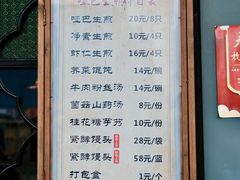 哑巴生煎价目表
哑巴生煎 20元/8只
净素生煎 10元/4只
虾仁生煎 16元/4只
荠菜馄饨 14元/碗
牛肉粉丝汤 14元/碗
菌菇山药汤 8元/份
桂花糖芋艿 10元/份
紧酵馒头 28元/袋
紧酵馒头 58元/蓝
打包盒 1元/个